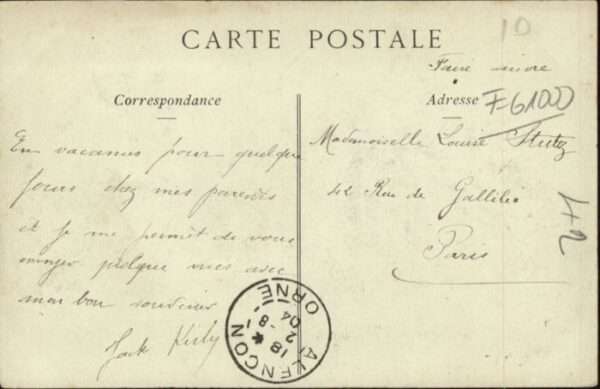 10
CARTE POSTALE
Faire suivre
Correspondance
Adresse
F-61000
En vacances pour quelque
jours chez mes parents
et je me permet de vous
quelque vues avec
mon bon souvenir
Jack
Mademoiselle Louise
42 Rue de Gallilée
Paris
42
ALENCON
ORNE
18 *
2 - 8
04